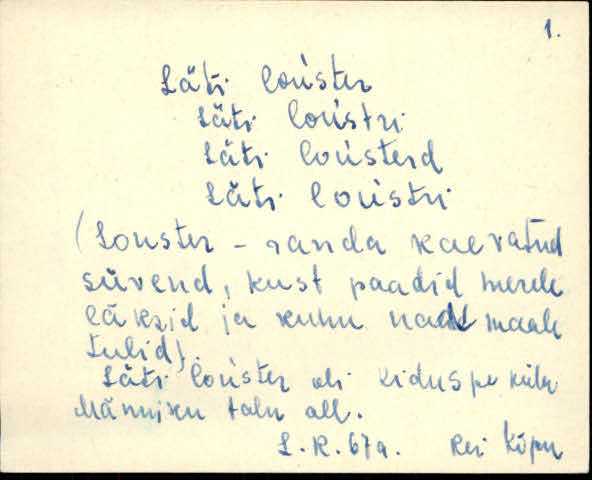 1.
Läti loúster
Läti loústri
Läti loústerd
Läti loústri
(Louster – randa kaevatud
süvend, kust paadid merele
läksid ja kuhu nad maale
tulid).
Läti loúster oli Kiduspe küla
Männiku talu all.
L. K. 67a. Rei Kõpu